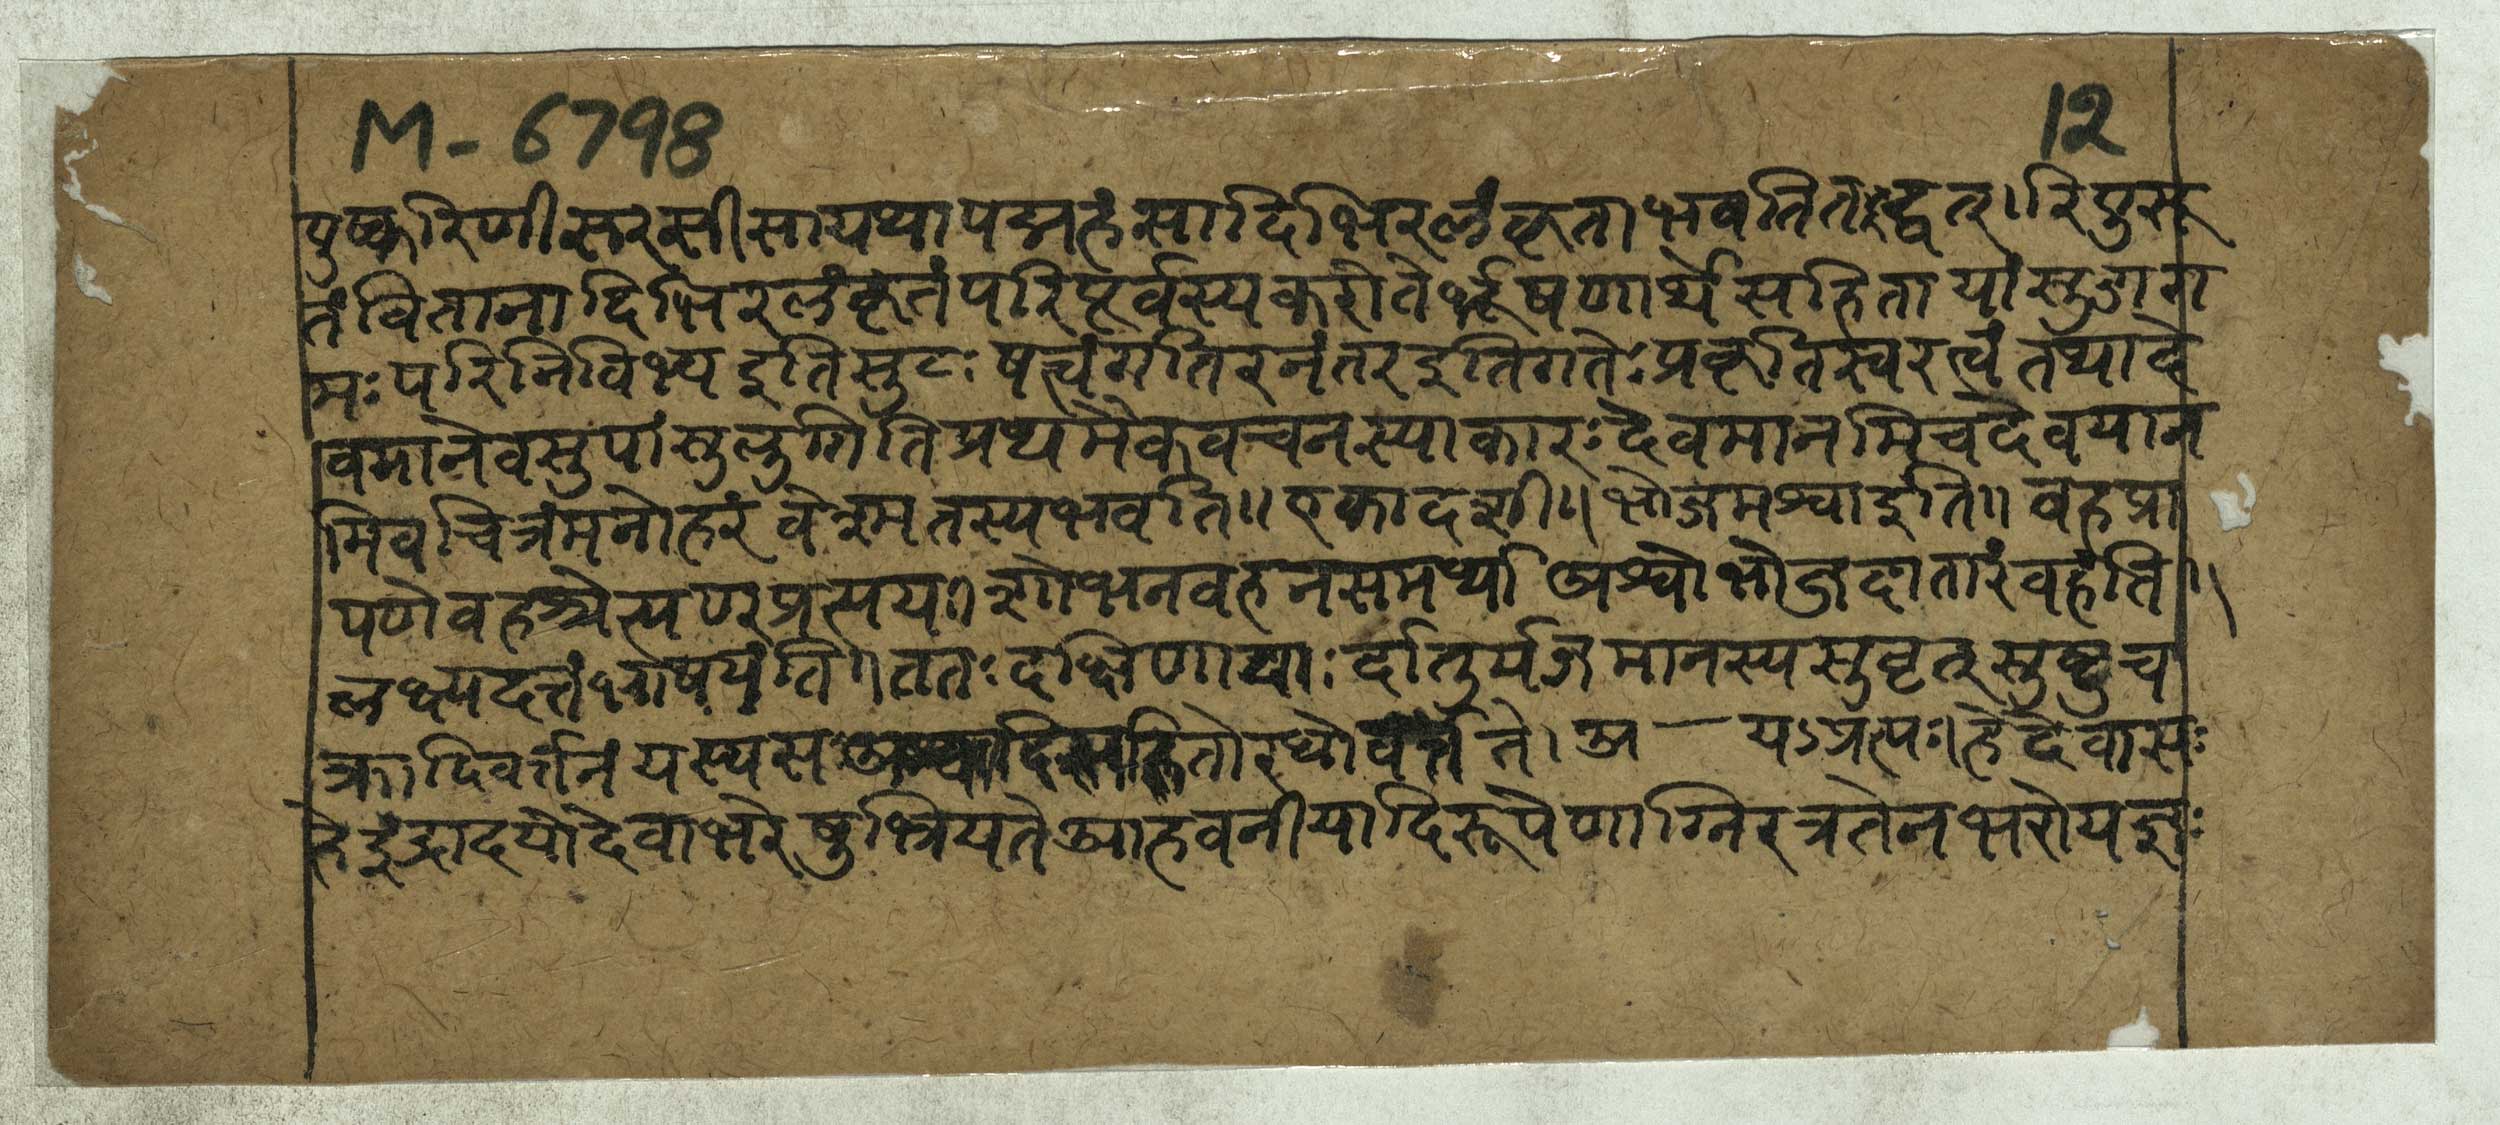 M-6798 12
पुष्करिणी सरसी सा यथा पद्महंसादिभिरलंकृता भवति तद्वत्। रिपुसू
तं वितानादिभिरलंकृतं परिपूर्वस्य करोतेर्भूषणार्थे सहितायां सुडाग
मः परिनिविभ्य इति सुटः षत्वं गतिरनंतर इति गतेः प्रकृतिस्वरत्वं तथा दे
वमानेव सुपां सुलुगिति प्रथमैकवचनस्याकारः देवमानमिच देवयान
मिव चित्रं मनोहरं वेश्म तस्य भवति॥ एकादशी॥ भोजमश्वा इति॥ वह प्रा
पणे वहश्चेत्यण् प्रत्यय। शोभनवहनसमर्था अश्वो भोजदातारं वहंति॥
लक्ष्यदत्तं भाषयंति। ततः दक्षिणाद्याः र्दातुर्यजमानस्य सुवृत् सुष्टु च
क्रादिवर्त्तनं यस्य सः अश्वादिसहितो रथो वर्त्तते। अ — यऽप्रत्यः। हे देवासः
हे इंद्रादयो देवा भरेषु भ्रियते आहवनीयादिरूपेणाग्निरत्रतेन भरो यज्ञः